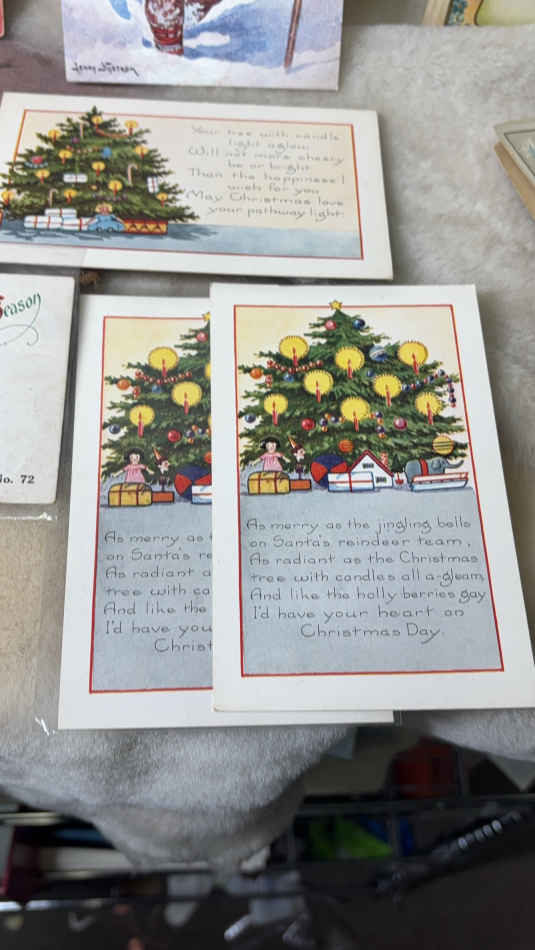 Your tree with candle
light aglow
Will not more cheery
be or bright
Than the happiness I
wish for you
May Christmas love
your pathway light.
Season
No. 72
As merry as
on Santa's re
As radiant a
tree with ca
And like the
I'd have you
Christ
As merry as the jingling bells
on Santa's reindeer team,
As radiant as the Christmas
tree with candles all a-gleam,
And like the holly berries gay
I'd have your heart on
Christmas Day.